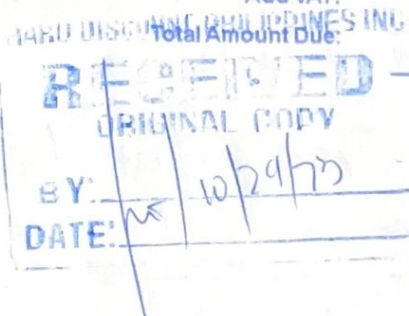 HARD DISCOUNT PHILIPPINES INC
Total Amount Due:
RECEIVED
ORIGINAL COPY
BY:
DATE: